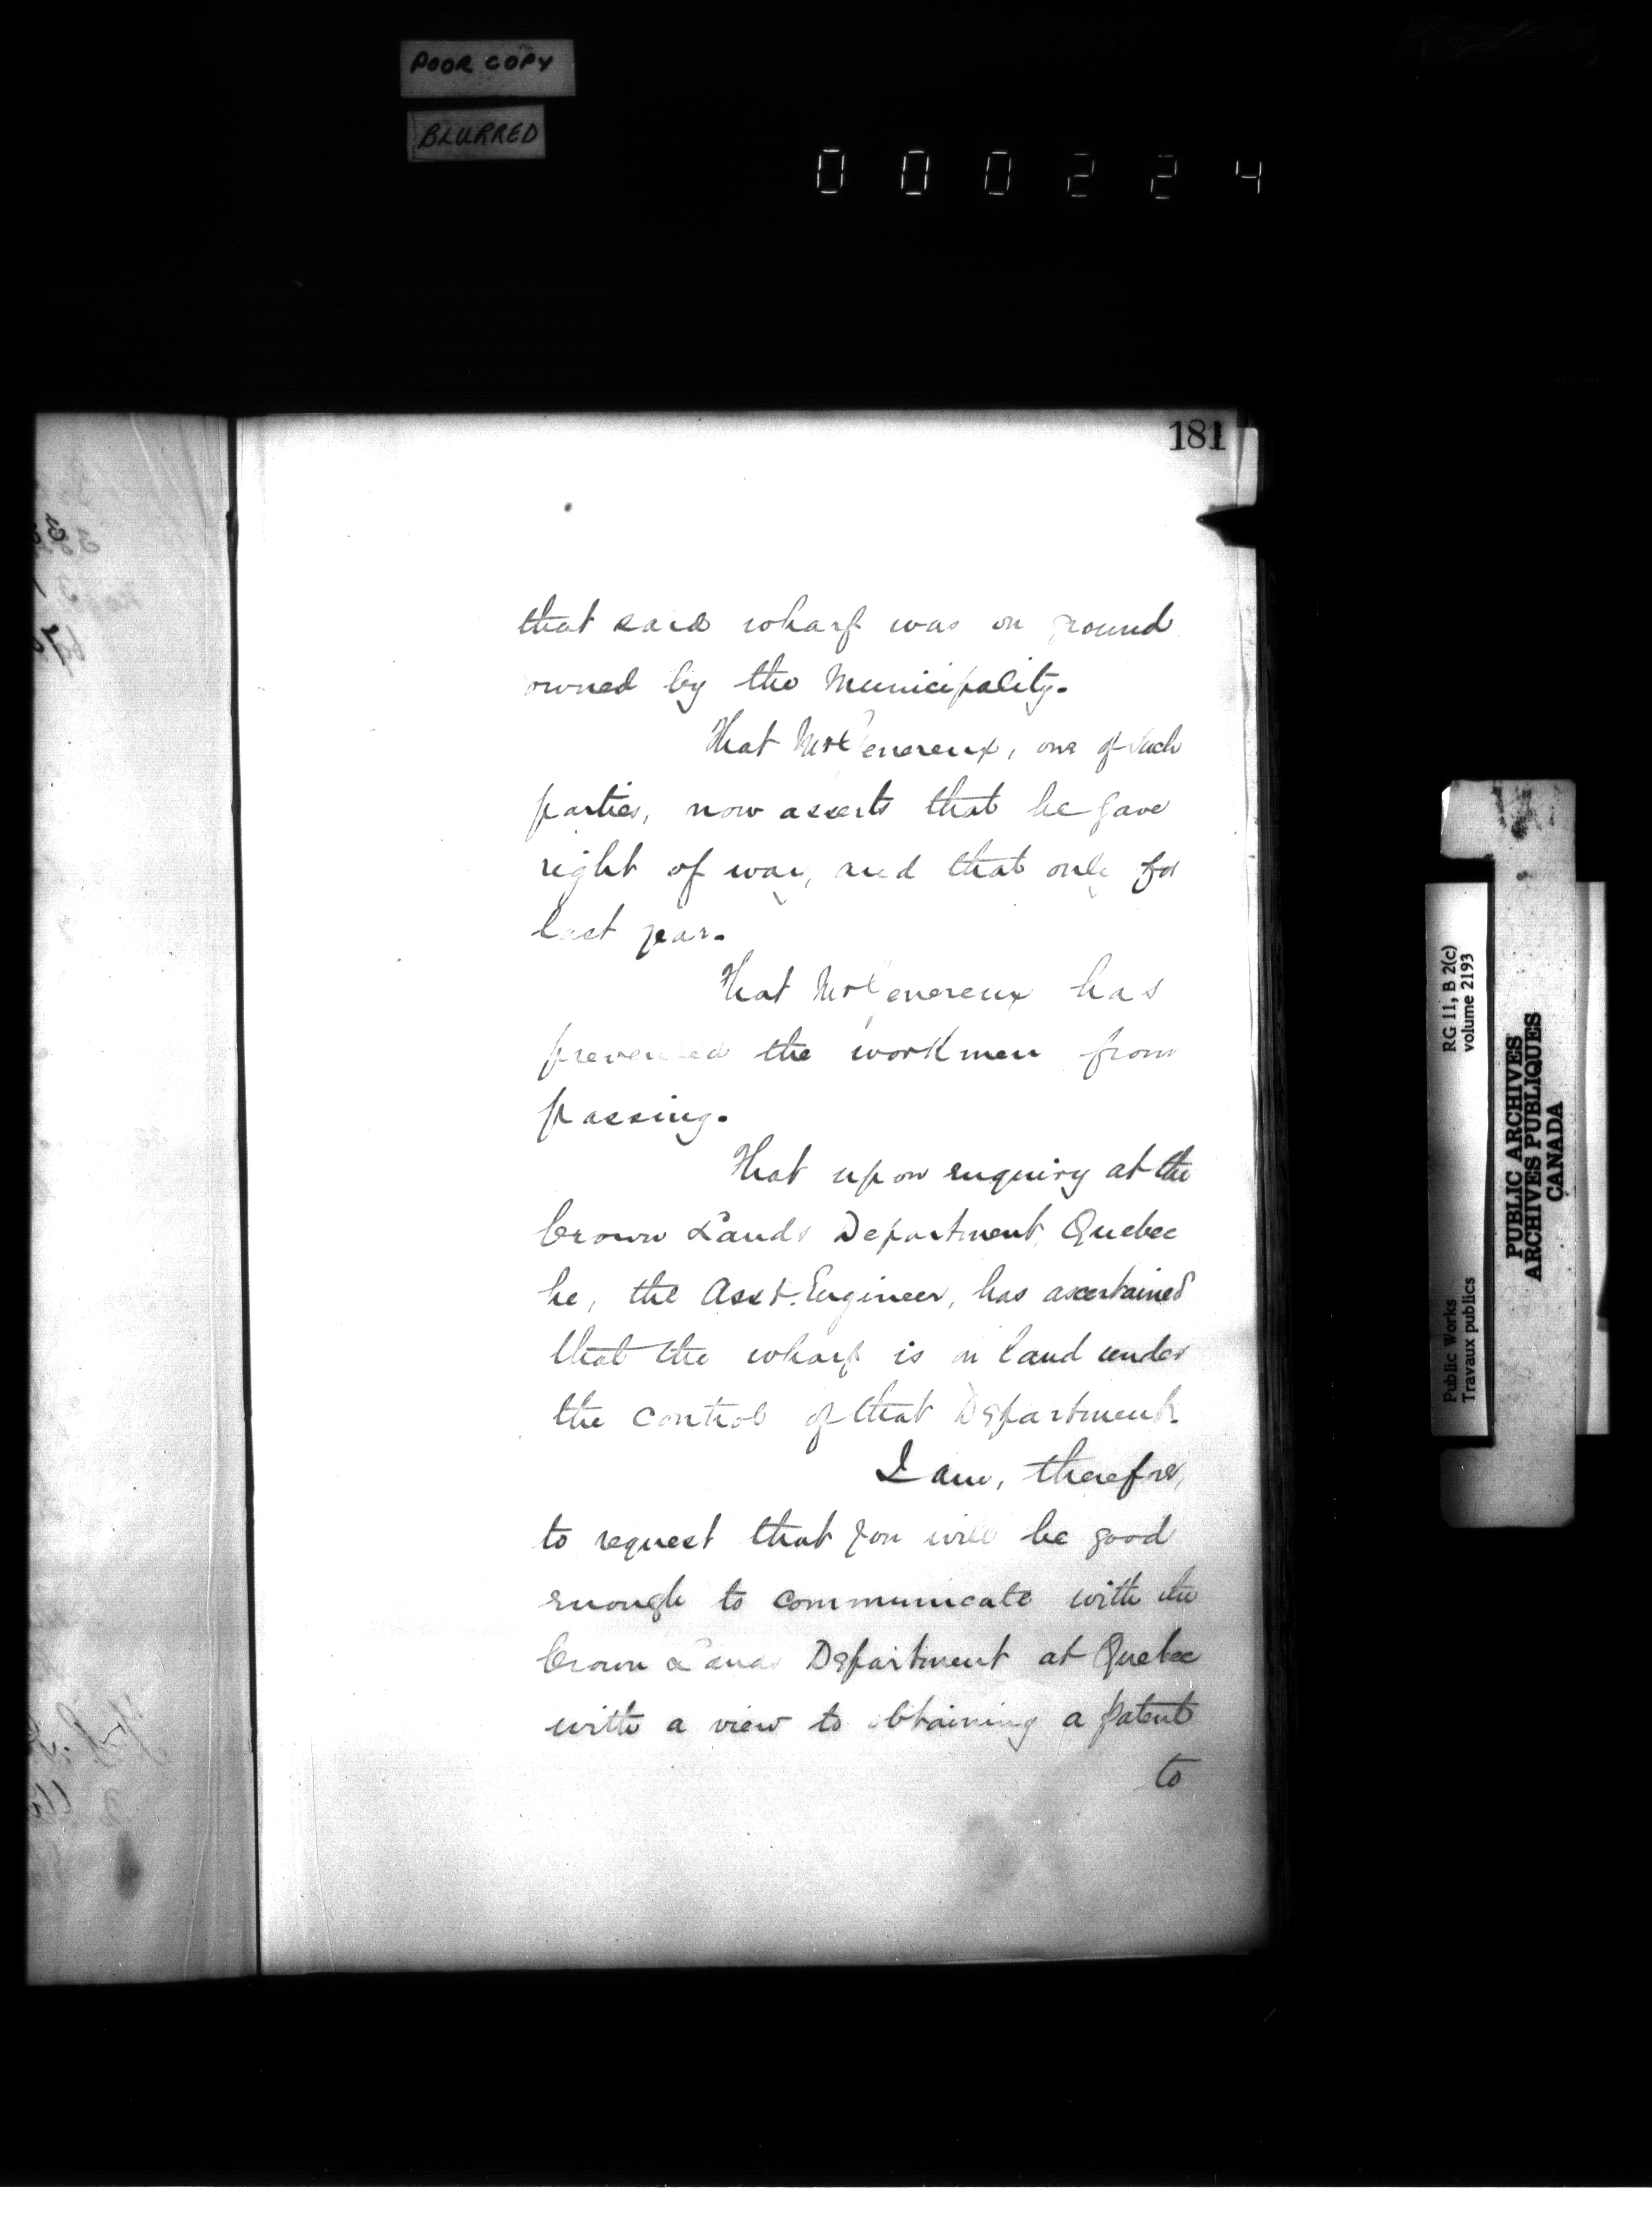 POOR COPY
BLURRED
000224
181
that said wharf was on ground
owned by the Municipality.
That Mr. Genereux, one of such
parties, now asserts that he gave
right of way, and that only for
last year.
That Mr. Genereux has
prevented the workmen from
passing.
That upon enquiry at the
Crown Lands Department Quebec
he, the Asst. Engineer, has ascertained
that the wharf is on land under
the control of that Department.
I am, therefore,
to request that you will be good
enough to communicate with the
Crown Lands Department at Quebec
with a view to obtaining a patent
to
RG 11, B 2(c)
volume 2193
Public Works
Travaux publics
PUBLIC ARCHIVES
ARCHIVES PUBLIQUES
CANADA